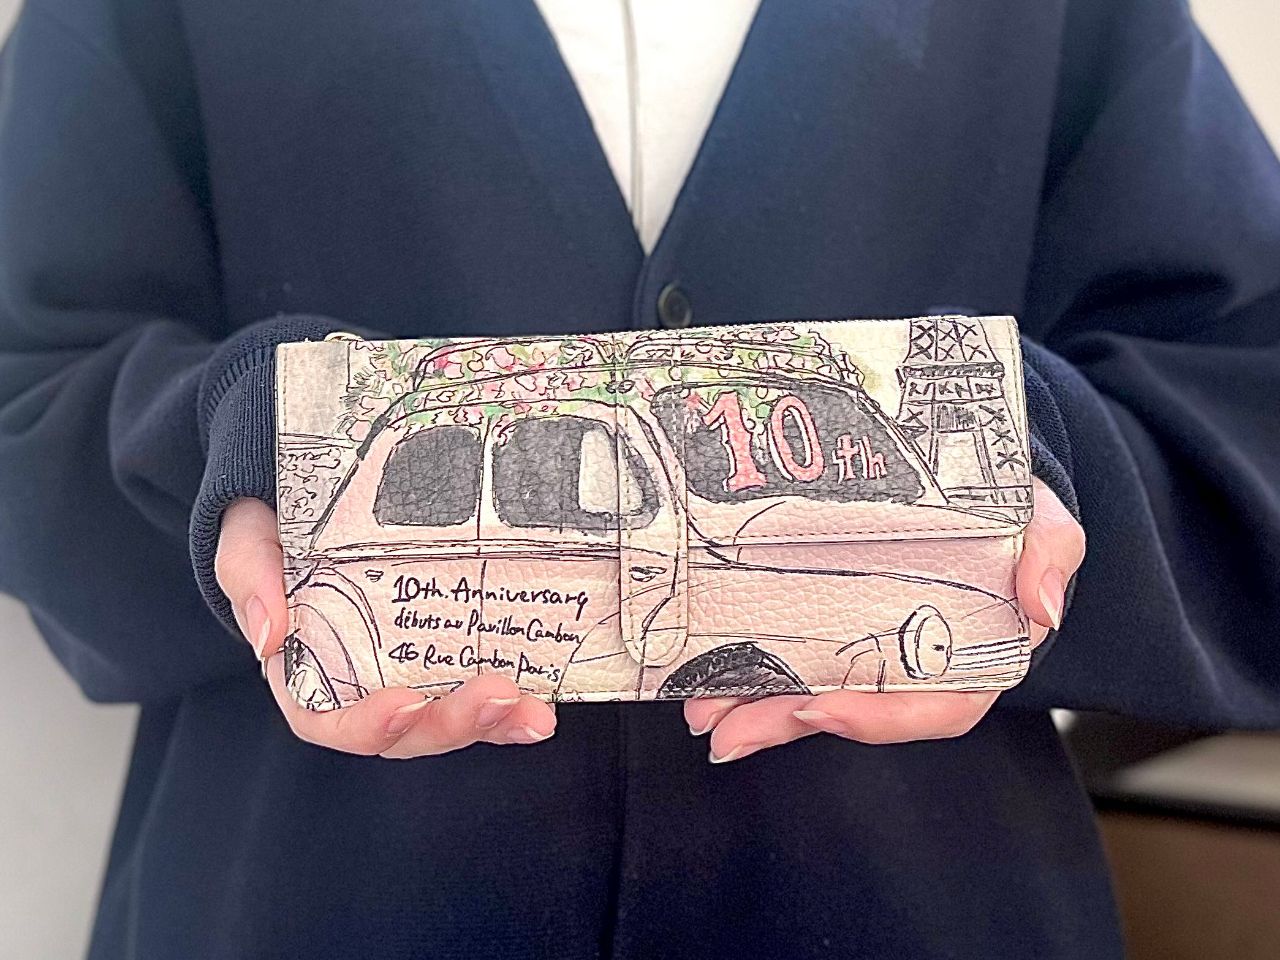 10th
10th. Anniversary
débuts au Pavillon Cambon
46 Rue Cambon Paris